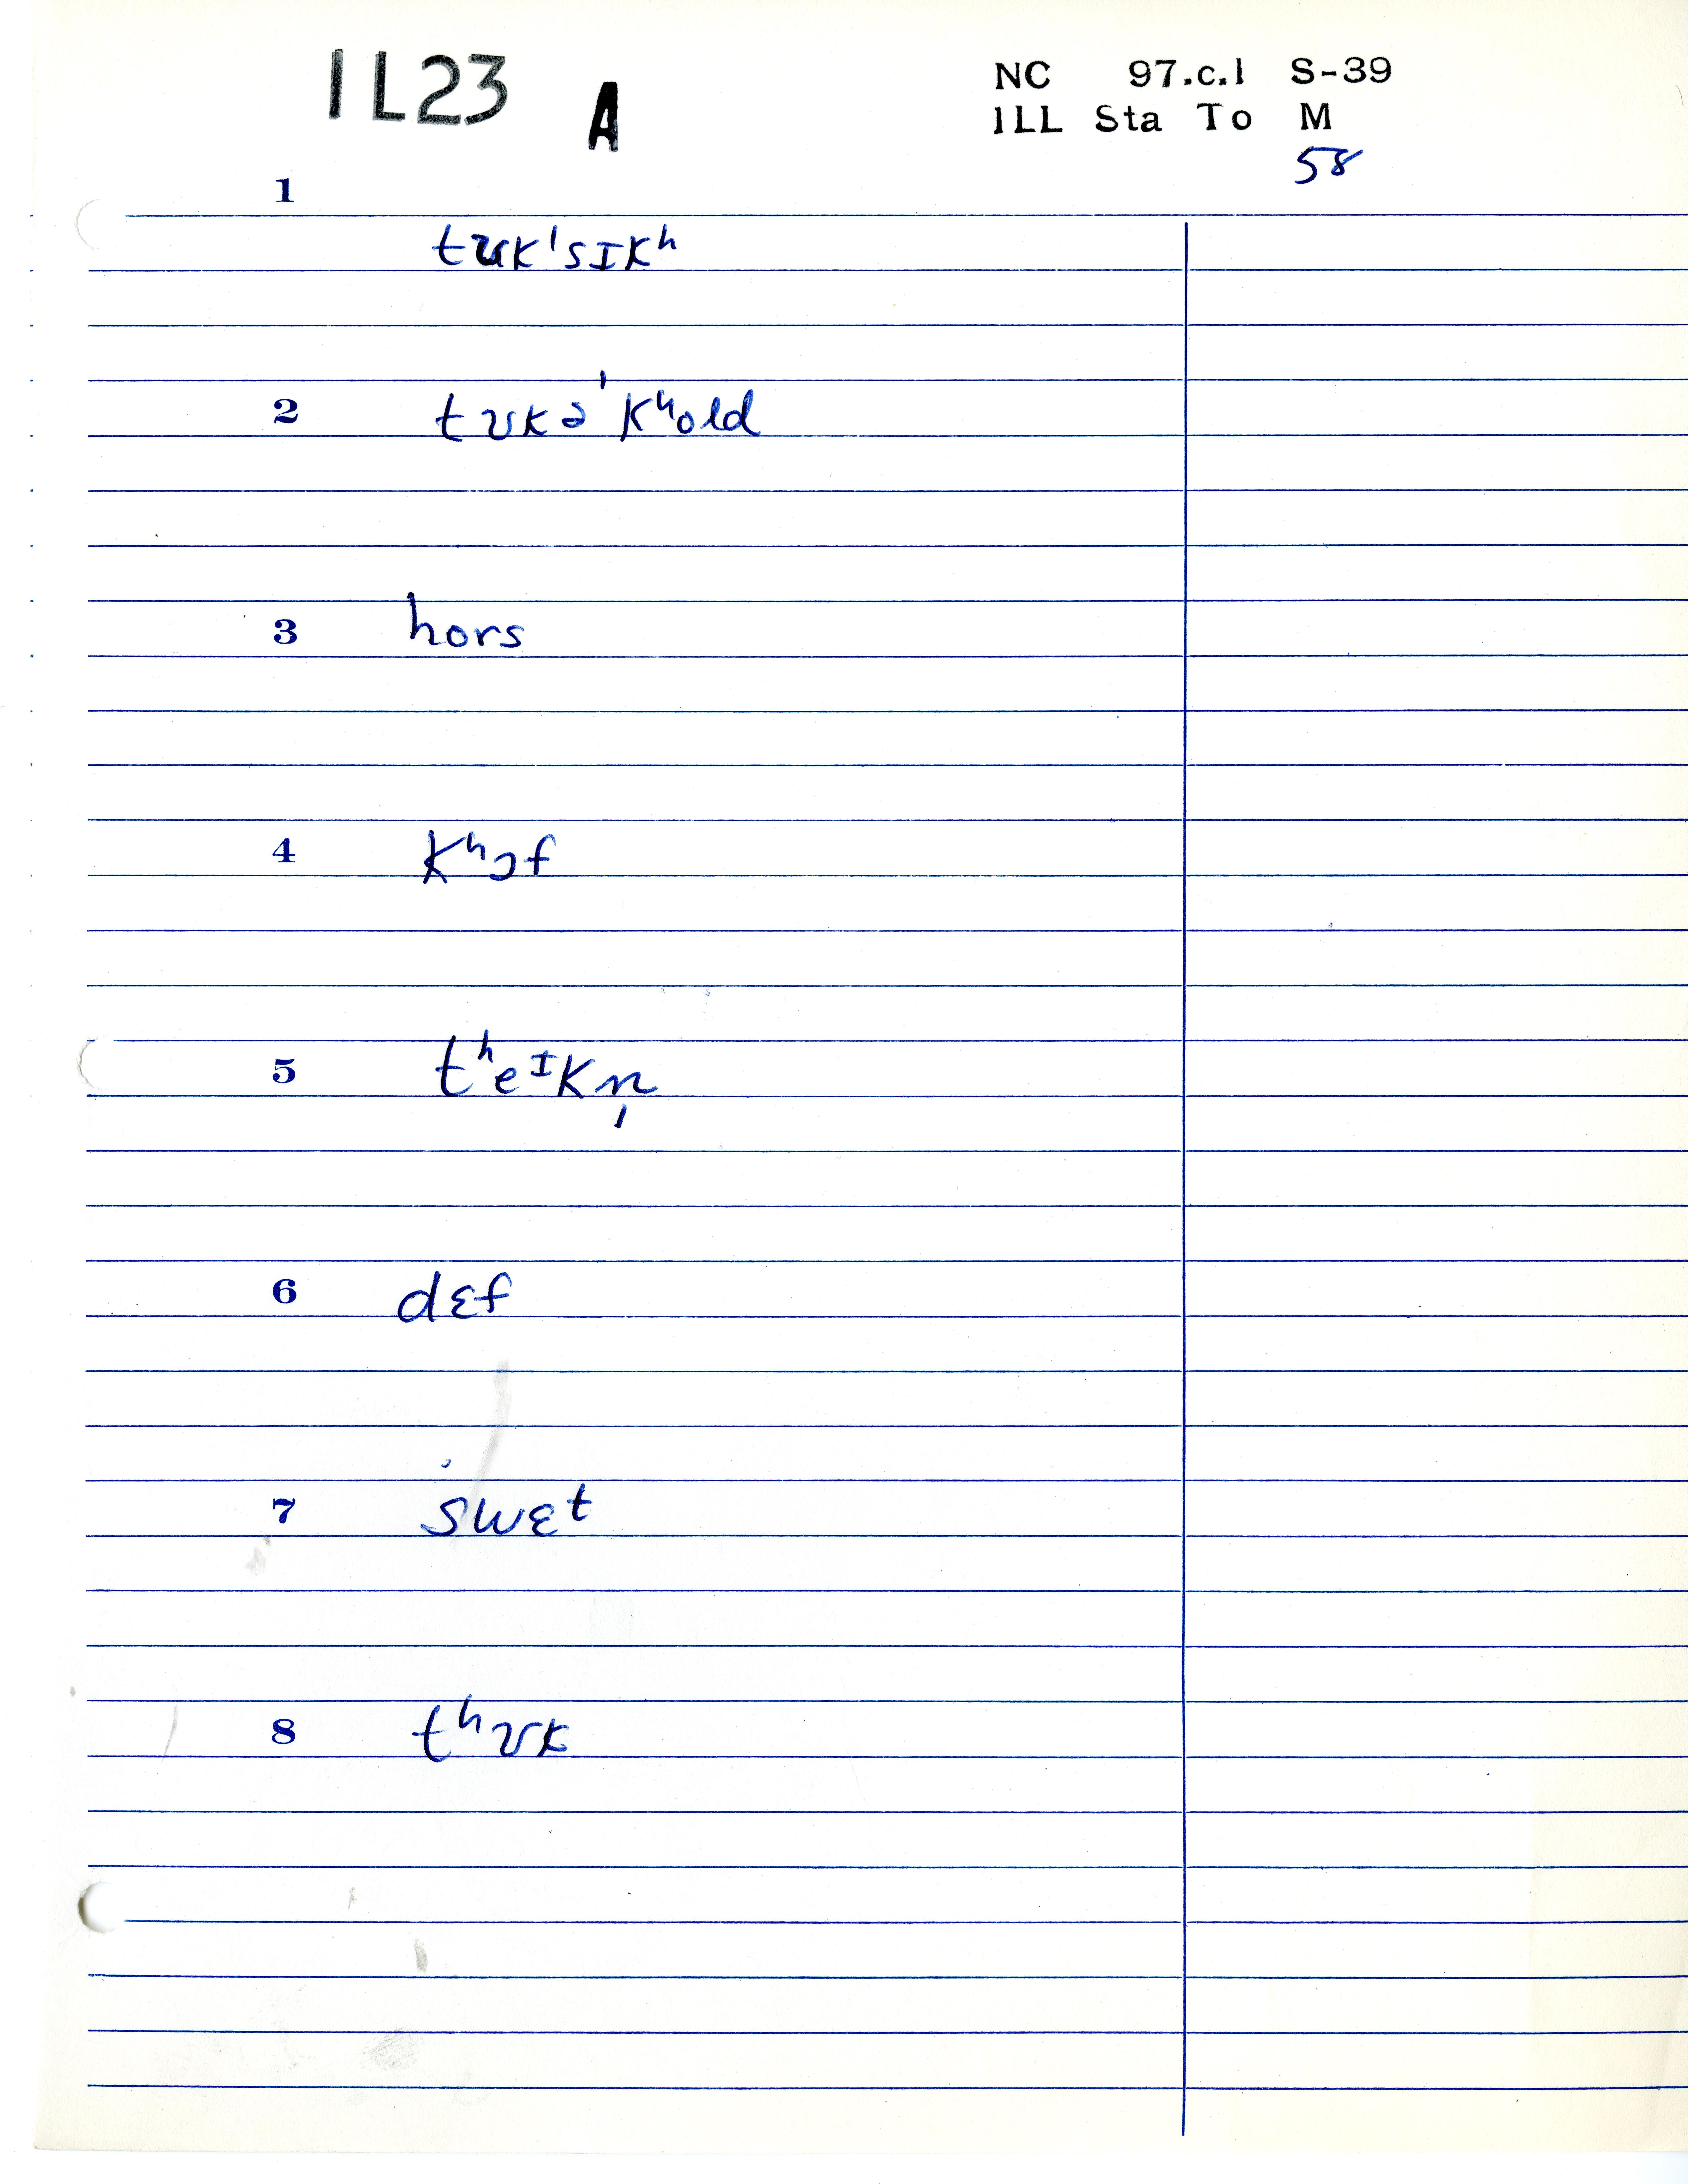 1L23 A
NC 97.c.1 S-39
ILL Sta To M
58
1
tʊkˈsɪkʰ
2 tʊkəˈkʰold
3 hors
4 kʰɔf
5 tʰeᴵkn̩
6 dɛf
7 swɛt
8 tʰʊk